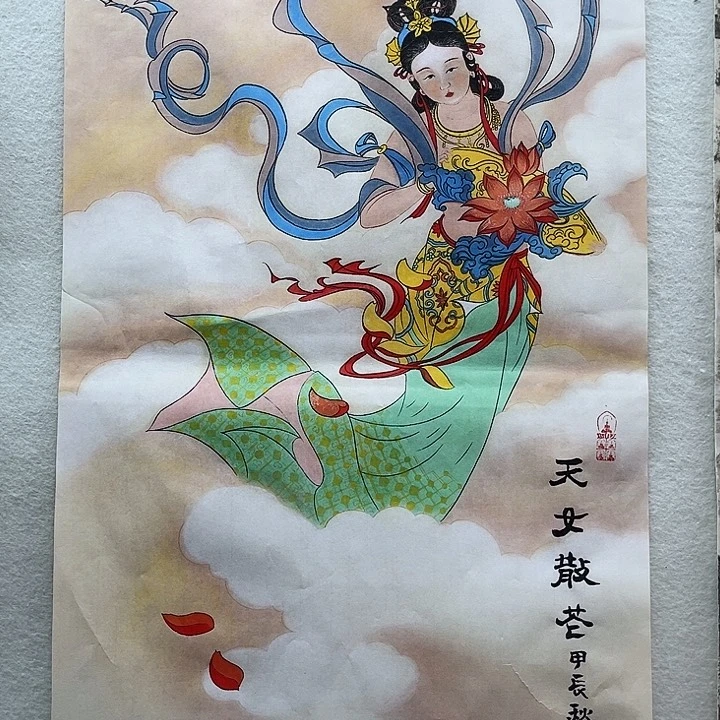 天女散花
甲辰秋